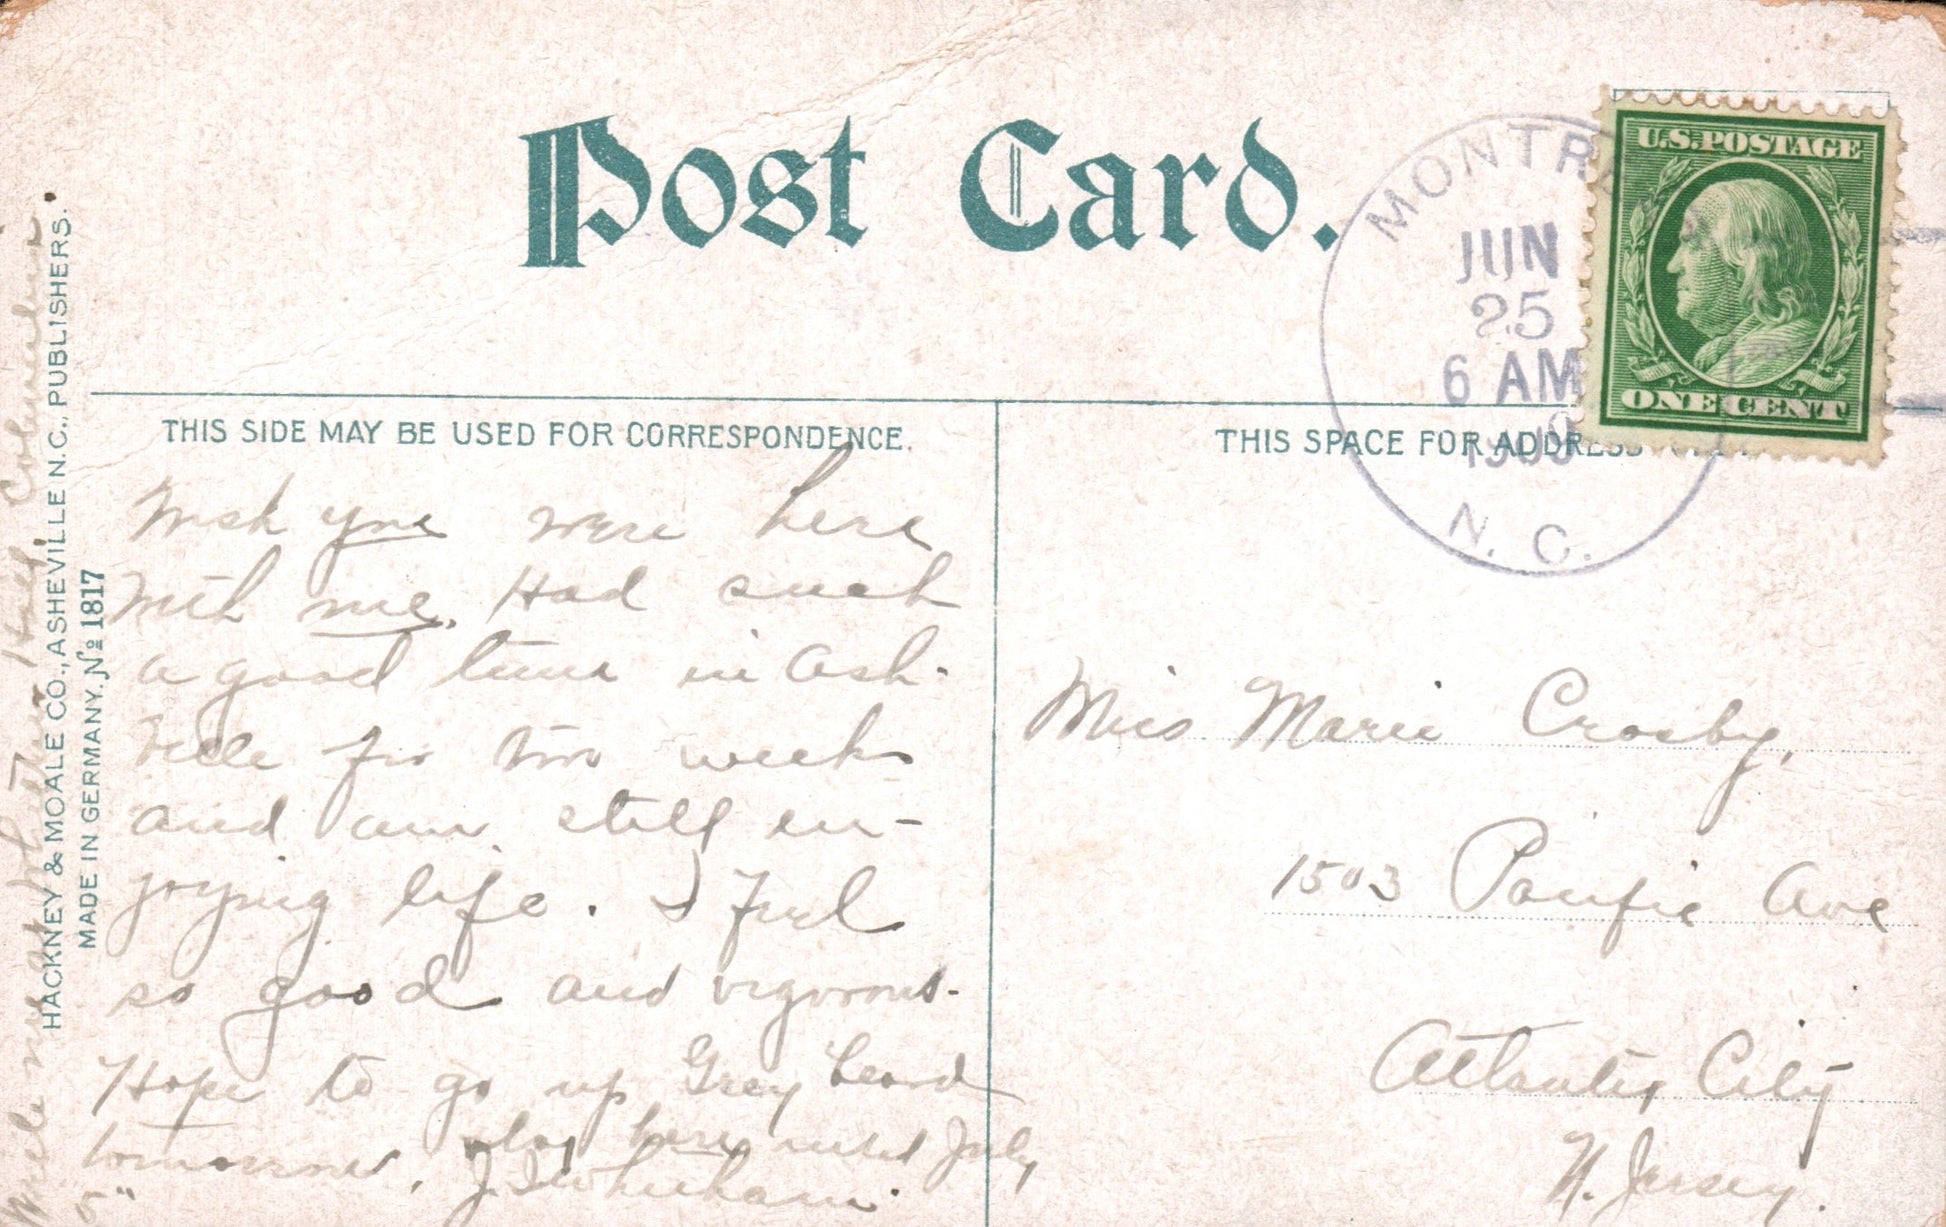 Post Card.
MONTRE
JUN
25
6 AM
1909
N. C.
U.S. POSTAGE
ONE CENT
THIS SIDE MAY BE USED FOR CORRESPONDENCE.
THIS SPACE FOR ADDRESS
Wish you were here
with me. Had such
a good time in Ash-
ville for two weeks
and am still en-
joying life. I feel
so good and vigorous.
Hope to go up Grey beard
tomorrow. stay here until July
5"
Miss Marie Crosby,
1503 Pacific Ave
Atlantic City
N. Jersey.
HACKNEY & MOALE CO., ASHEVILLE N.C., PUBLISHERS.
MADE IN GERMANY. No 1817
Write me Hall, Columbia